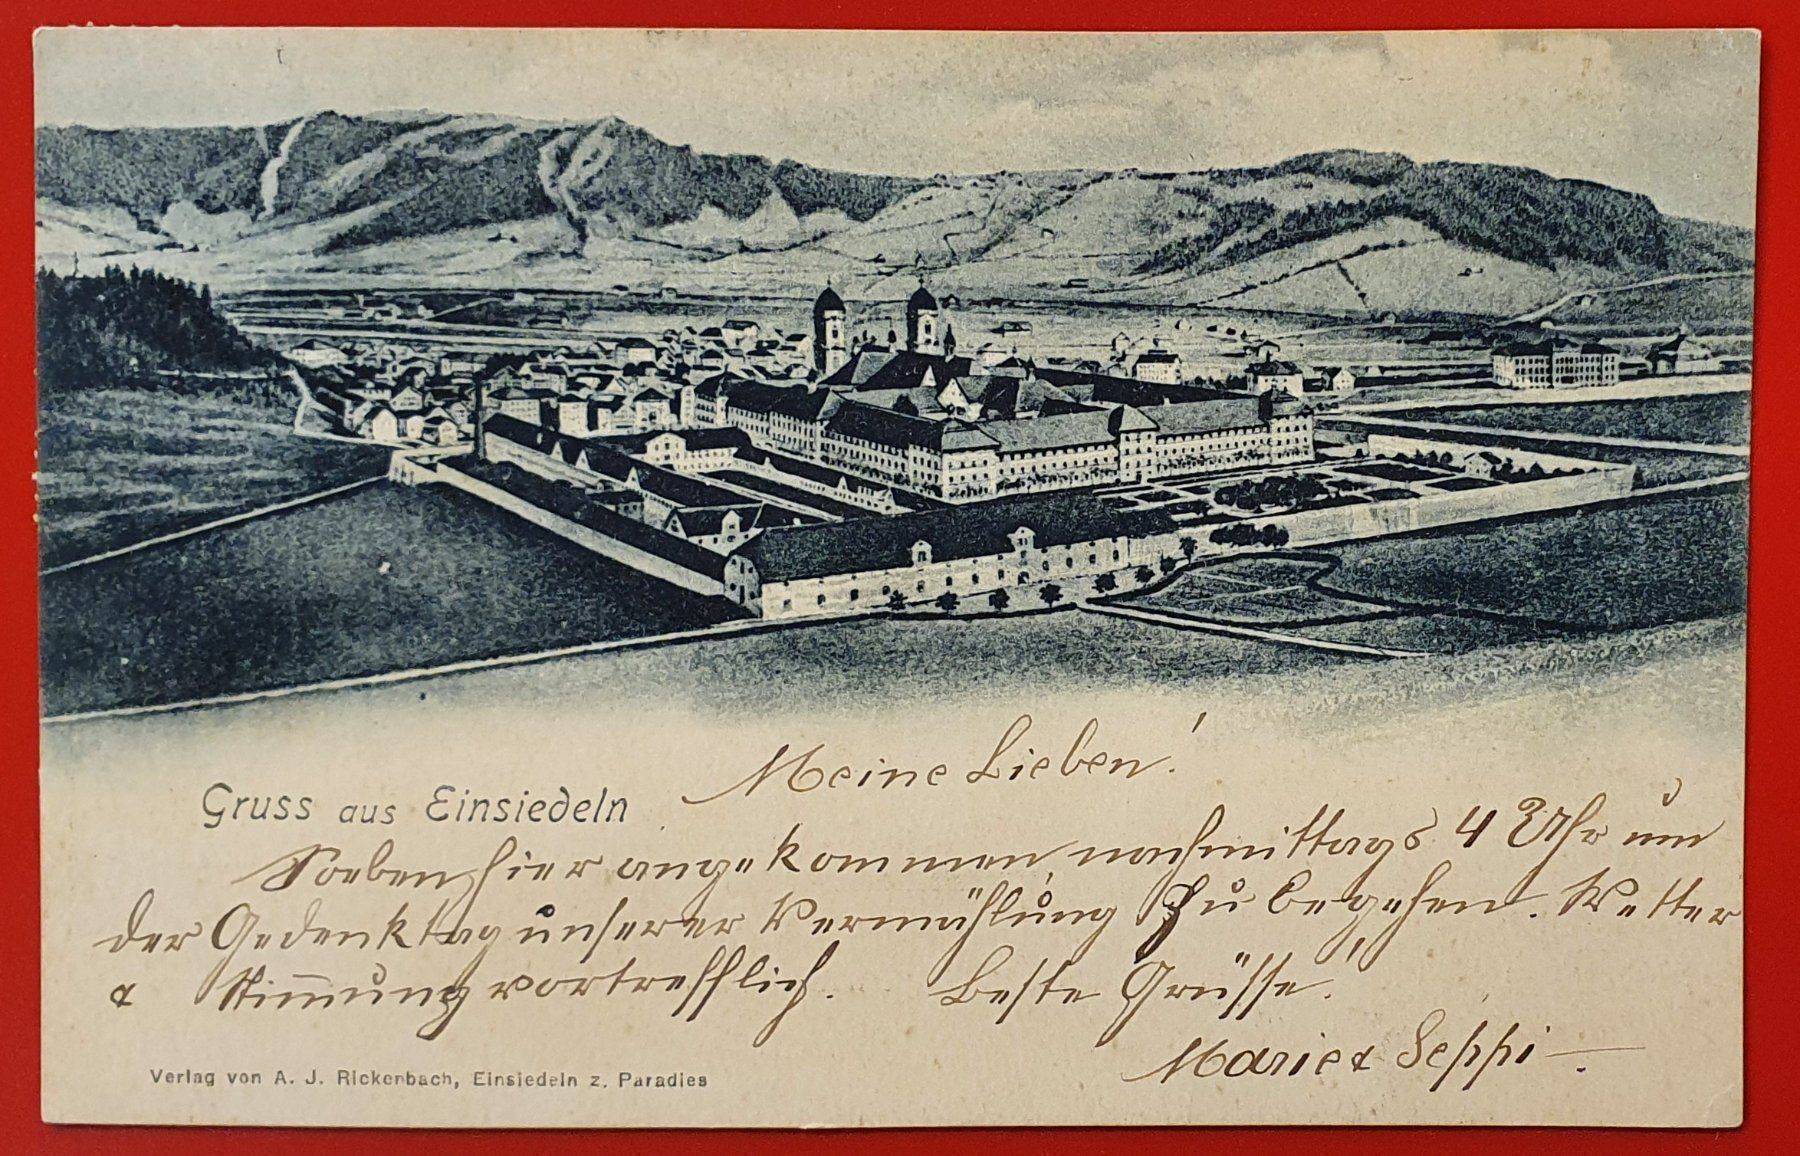 Meine Lieben!
Gruss aus Einsiedeln
Soeben hier angekommen nachmittags 4 Uhr um
der Gedenktag unserer Vermählung zu begehen. Wetter
& Stimmung vortrefflich. Beste Grüsse!
Marie & Seppi
Verlag von A. J. Rickenbach, Einsiedeln z. Paradies